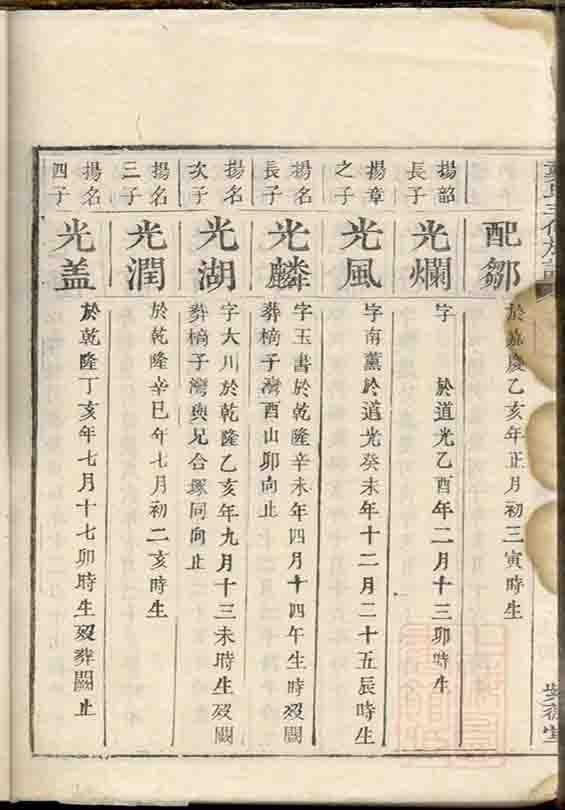 配鄒
於嘉慶乙亥年正月初三寅時生
揚韶
長子
光爛
字　　於道光乙酉年二月十三卯時生
揚章
之子
光風
字南薰於道光癸未年十二月二十五辰時生
揚名
長子
光麟
字玉書於乾隆辛未年四月十四午生時歿闕
葬楠子灣酉山卯向止
揚名
次子
光湖
字大川於乾隆乙亥年九月十三未時生歿闕
葬楠子灣與兄合塚同向止
揚名
三子
光潤
於乾隆辛巳年七月初二亥時生
揚名
四子
光盖
於乾隆丁亥年七月十七卯時生歿葬闕止